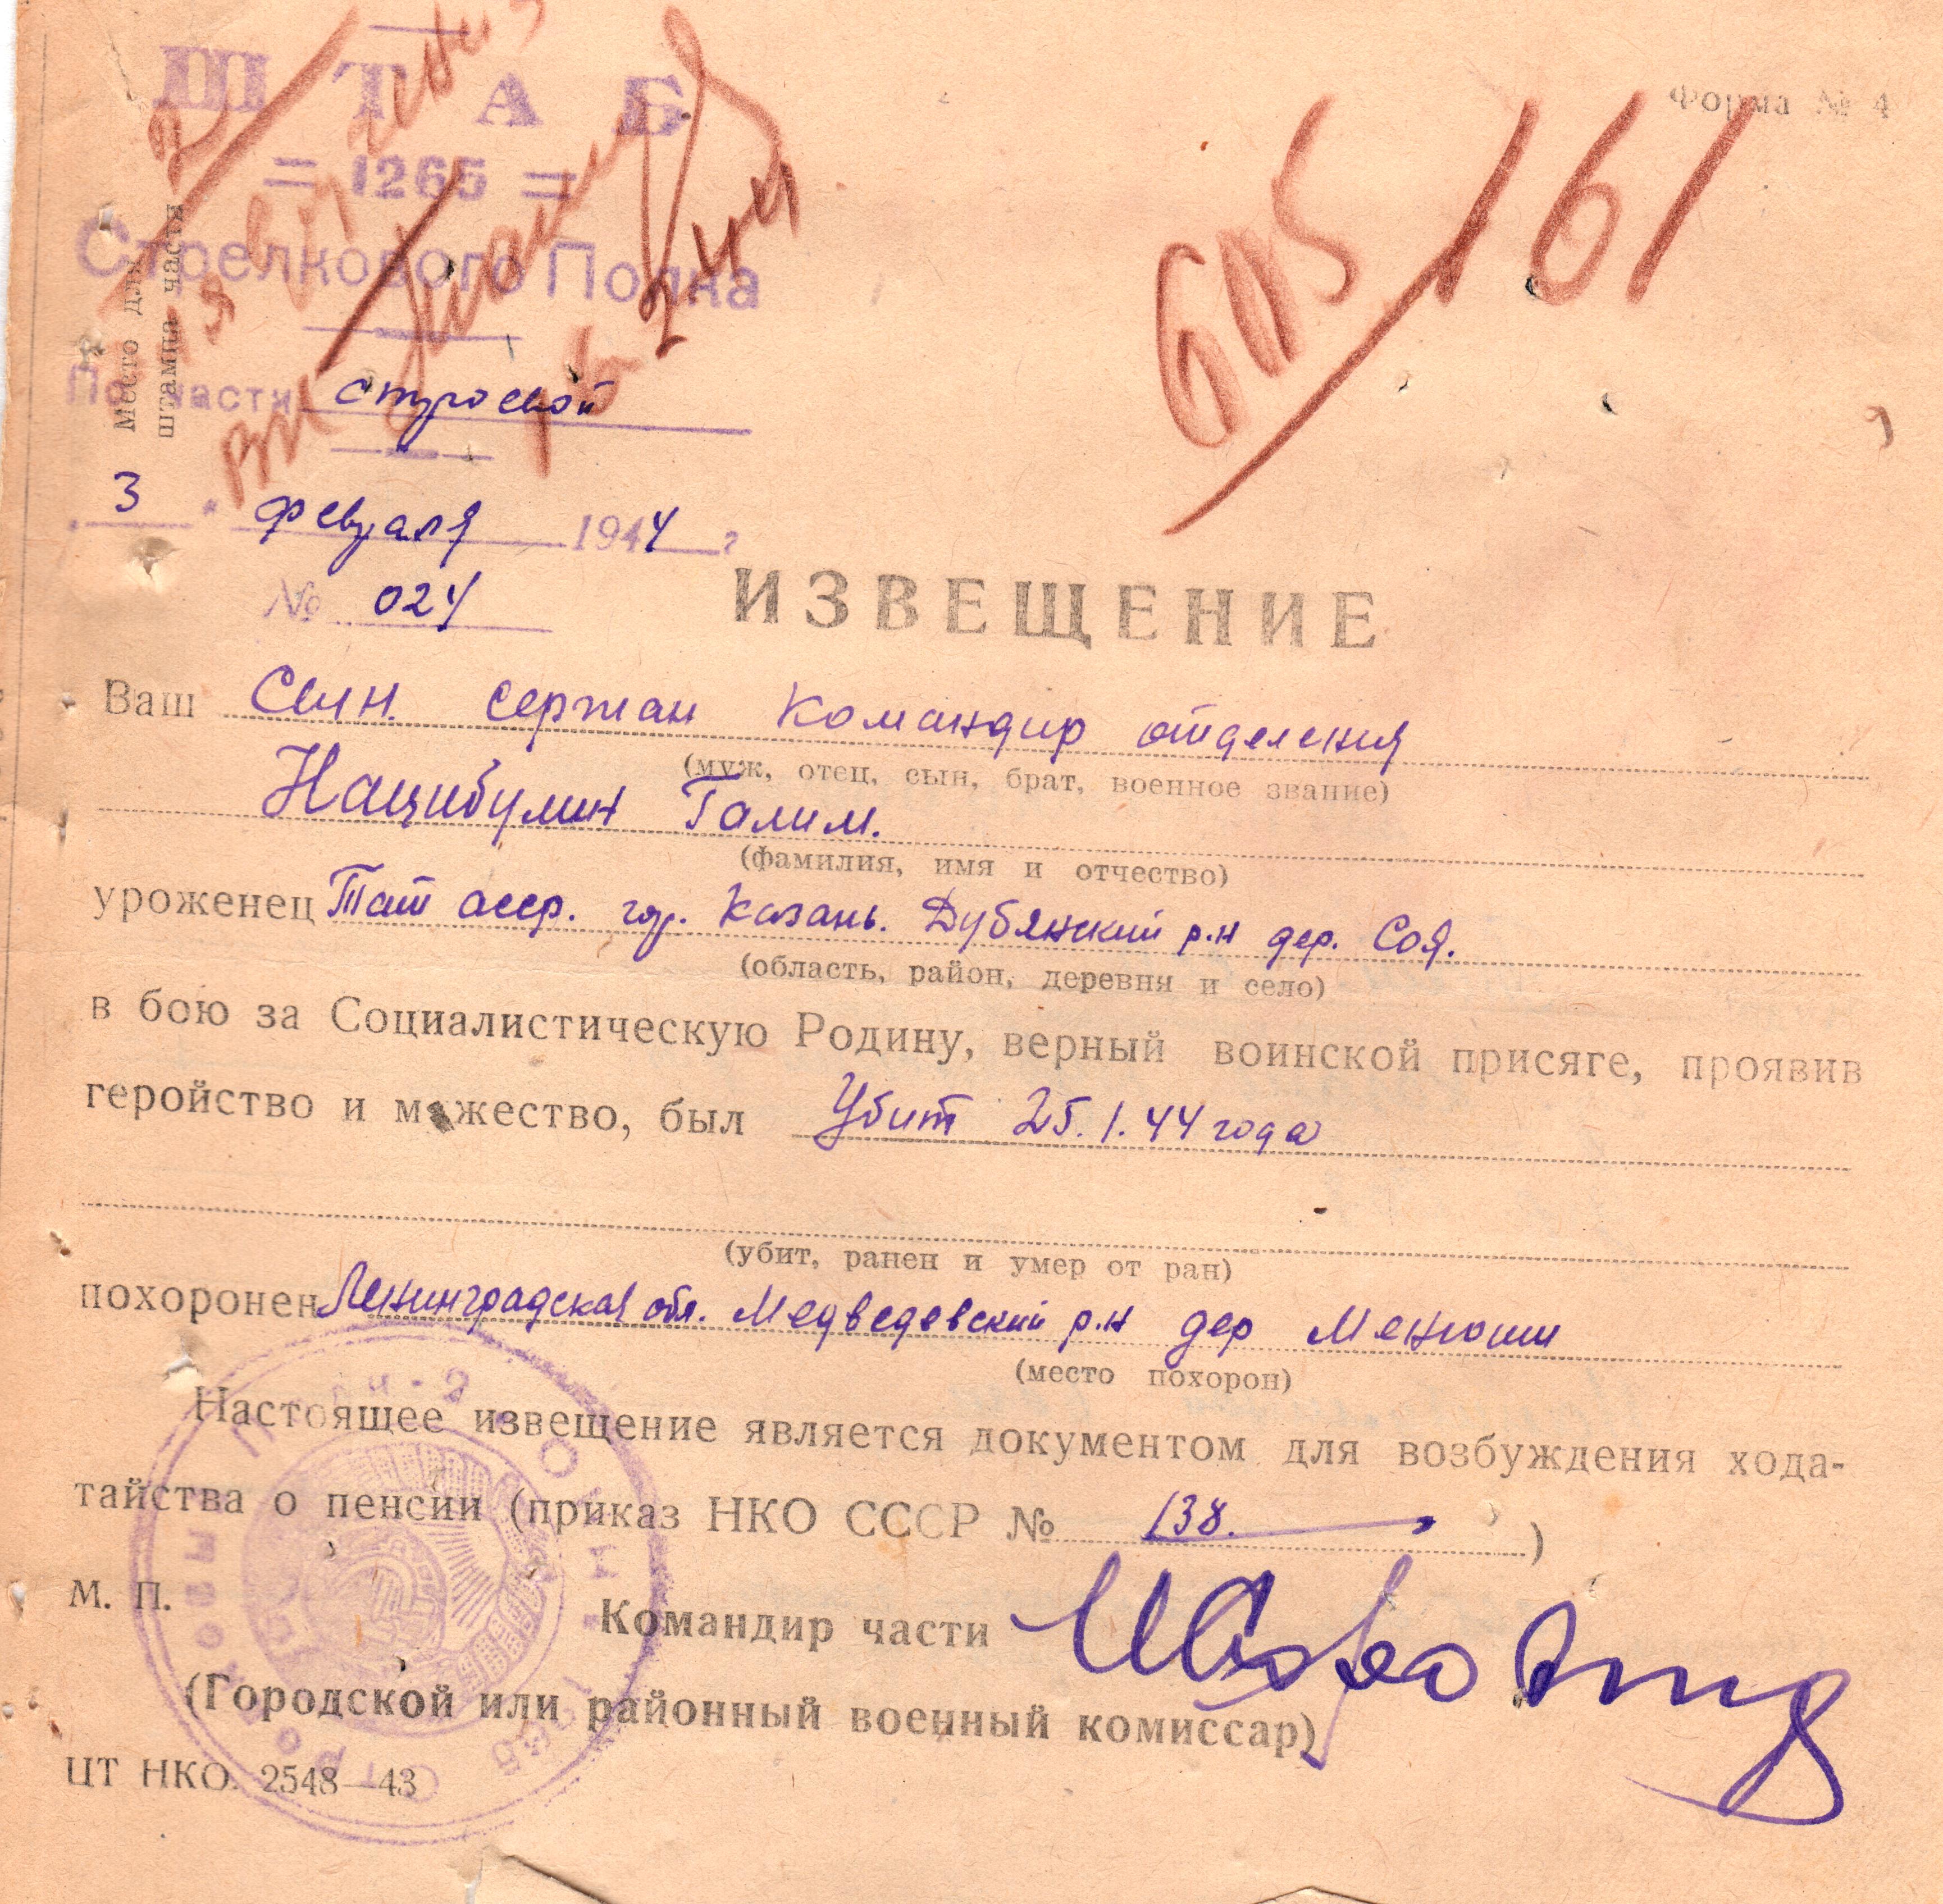 Форма № 4
ШТАБ
= 1265 =
Стрелкового Полка
Место для
штампа части
По части строевой
605/161
"3" февраля 1944 г
№ 024
ИЗВЕЩЕНИЕ
Ваш Сын. сержан командир отделения
(муж, отец, сын, брат, военное звание)
Нацибулин Галим.
(фамилия, имя и отчество)
уроженец Тат асср. гор. Казань. Дубянский р.н дер. Соя.
(область, район, деревня и село)
в бою за Социалистическую Родину, верный воинской присяге, проявив
геройство и мужество, был Убит 25.1.44 года
(убит, ранен и умер от ран)
похоронен Ленинградская обл. Медведевский р.н дер Менюши
(место похорон)
Настоящее извещение является документом для возбуждения хода-
тайства о пенсии (приказ НКО СССР № 138. )
М. П.
Командир части
(Городской или районный военный комиссар)
ЦТ НКО. 2548—43